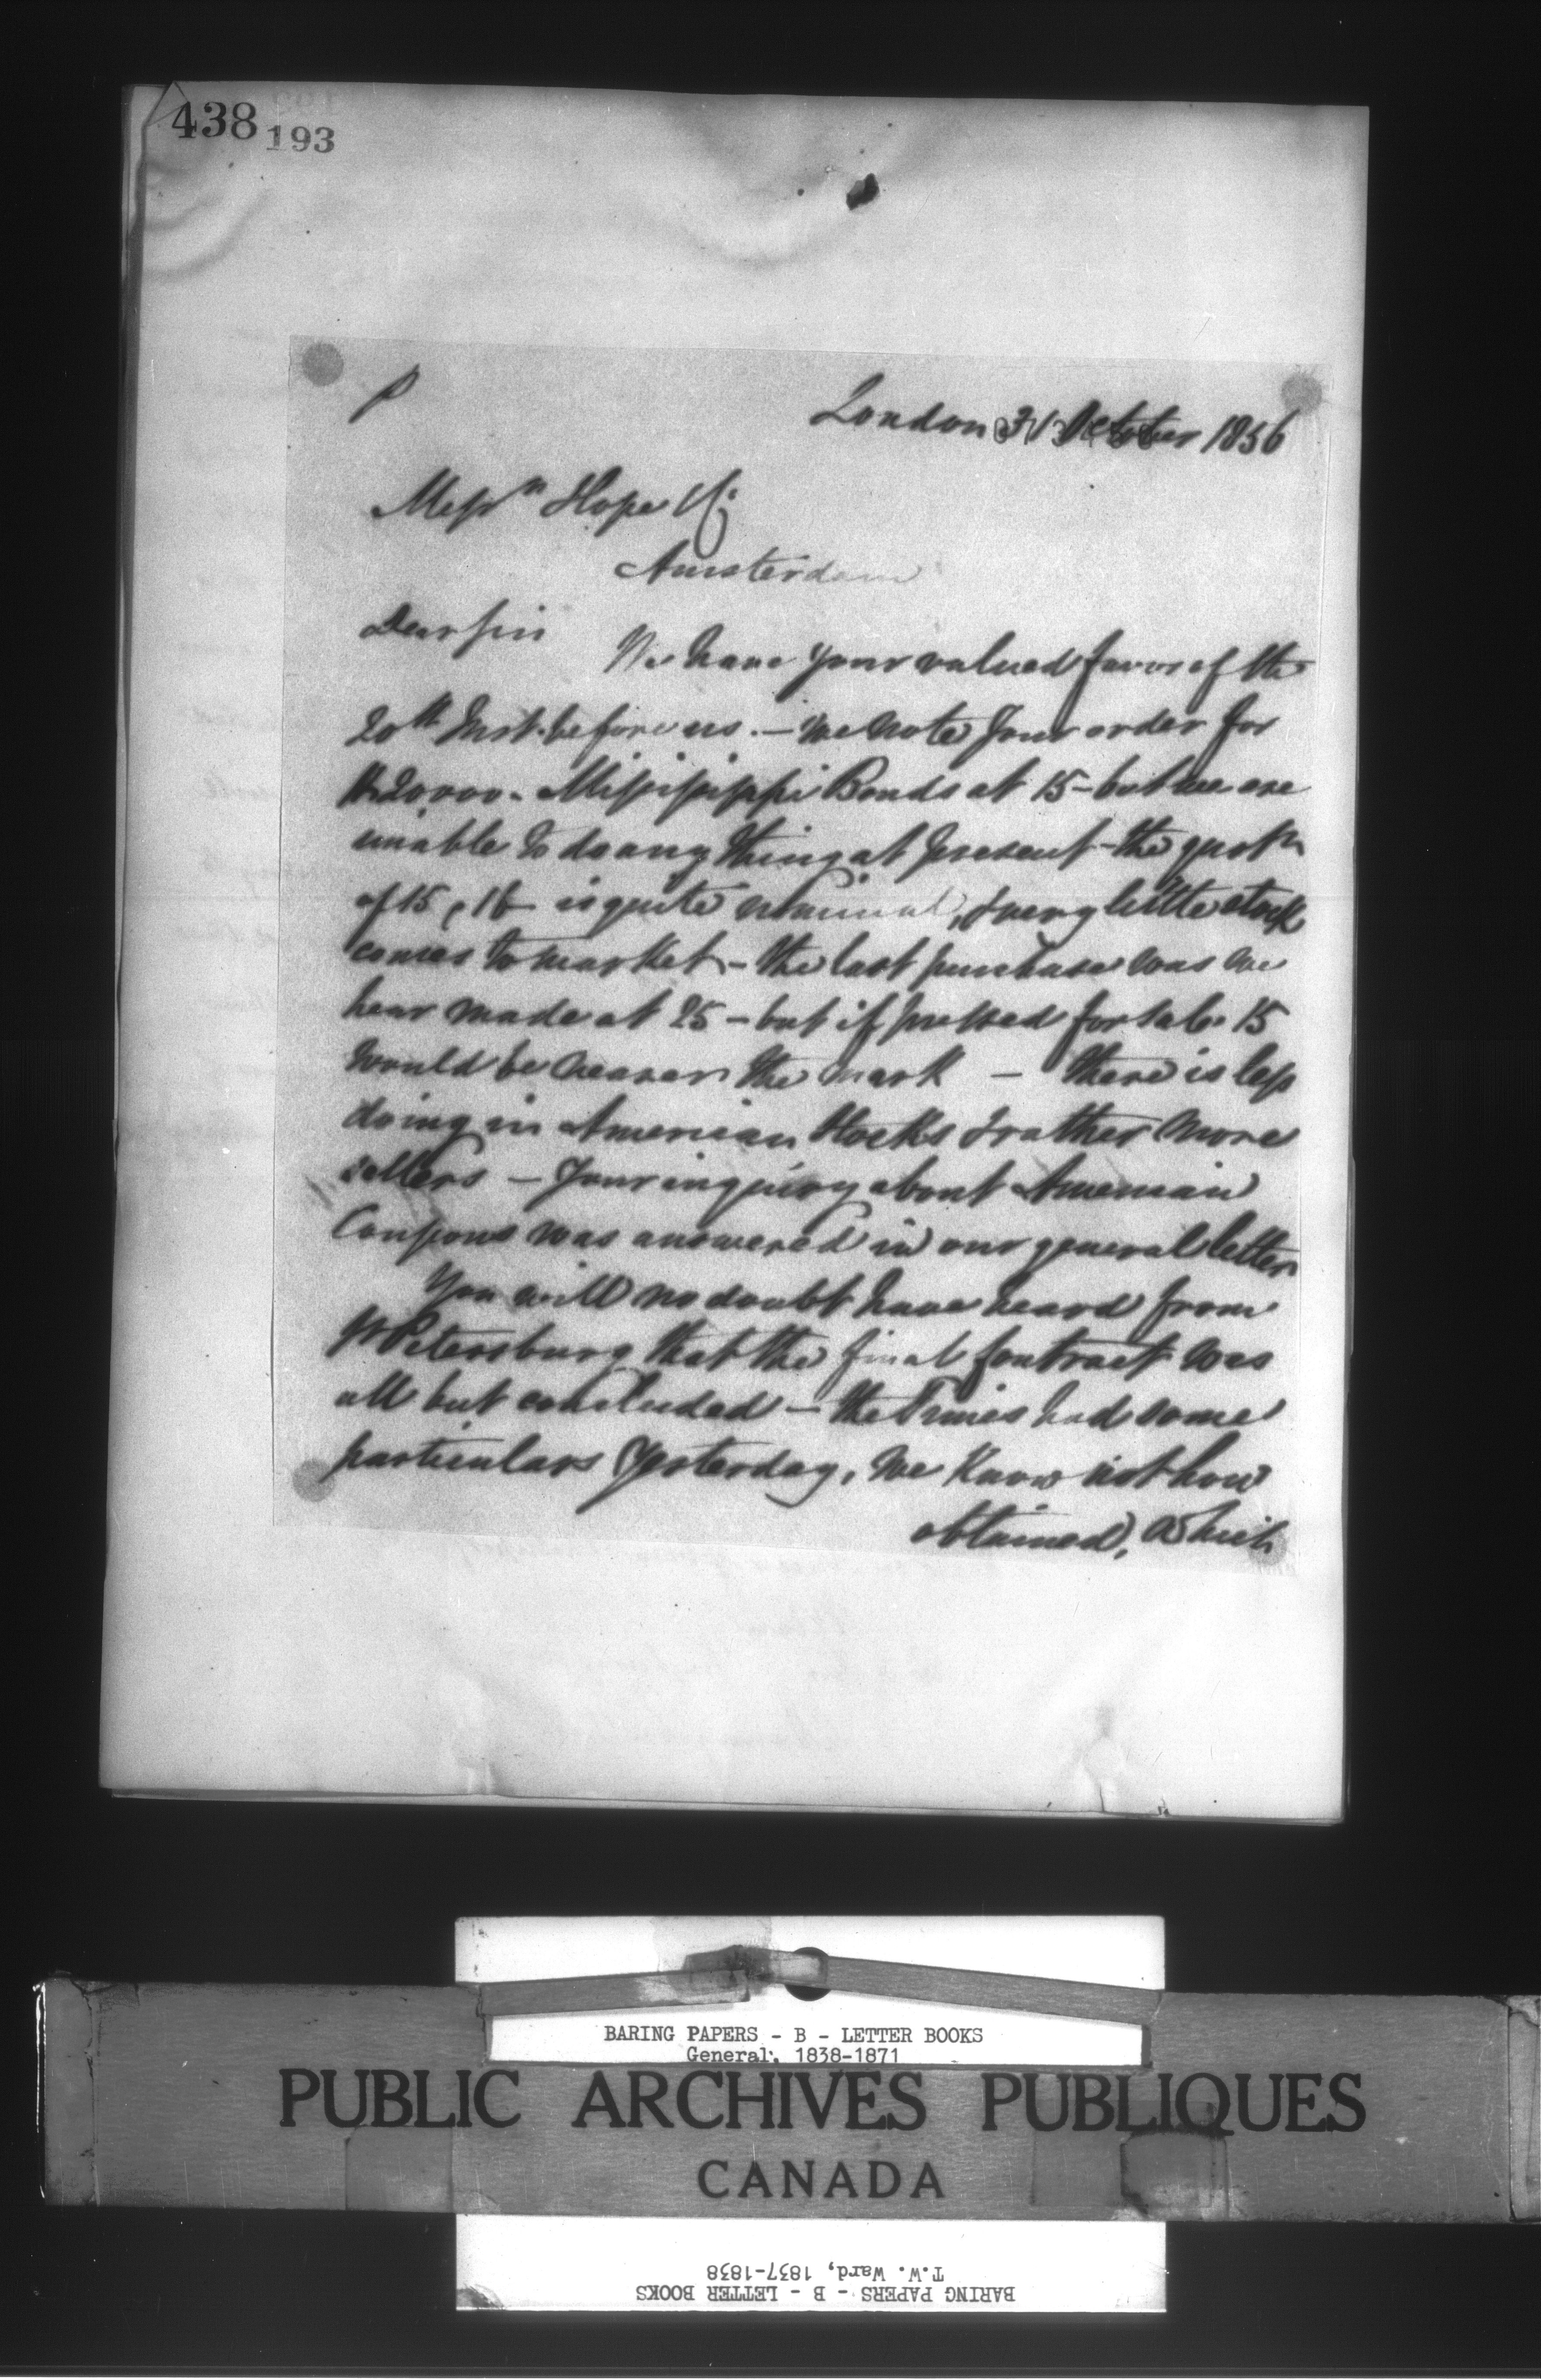 438
193
P
London 31 October 1856
Messrs Hope & Co
Amsterdam
Dear Sirs
We have your valued favor of the
20th Inst. before us. — we note your order for
$20000. Missisippi Bonds at 15 — but we are
unable to do any thing at present — the quotn
of 15 @ 16 is quite nominal, & very little stock
comes to market — the last purchase was we
hear made at 25 — but if pressed for sale 15
would be nearer the mark — there is less
doing in American Stocks & rather more
sellers — Your inquiry about American
Coupons was answered in our general letter
You will no doubt have heard from
St Petersburg that the final contract was
all but concluded — the Times had some
particulars Yesterday, we know not how
obtained, which
BARING PAPERS - B - LETTER BOOKS
General, 1838-1871
PUBLIC ARCHIVES PUBLIQUES
CANADA
T.W. Ward, 1837-1838
BARING PAPERS - B - LETTER BOOKS